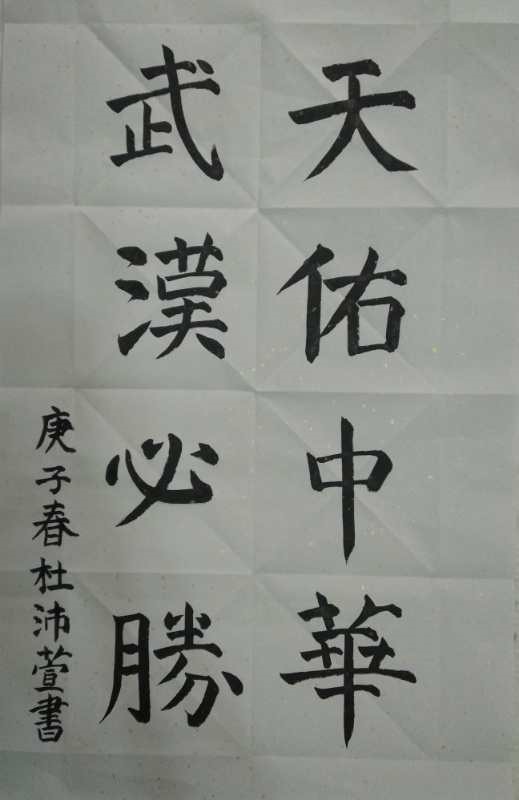 天佑中華
武漢必勝
庚子春杜沛萱書